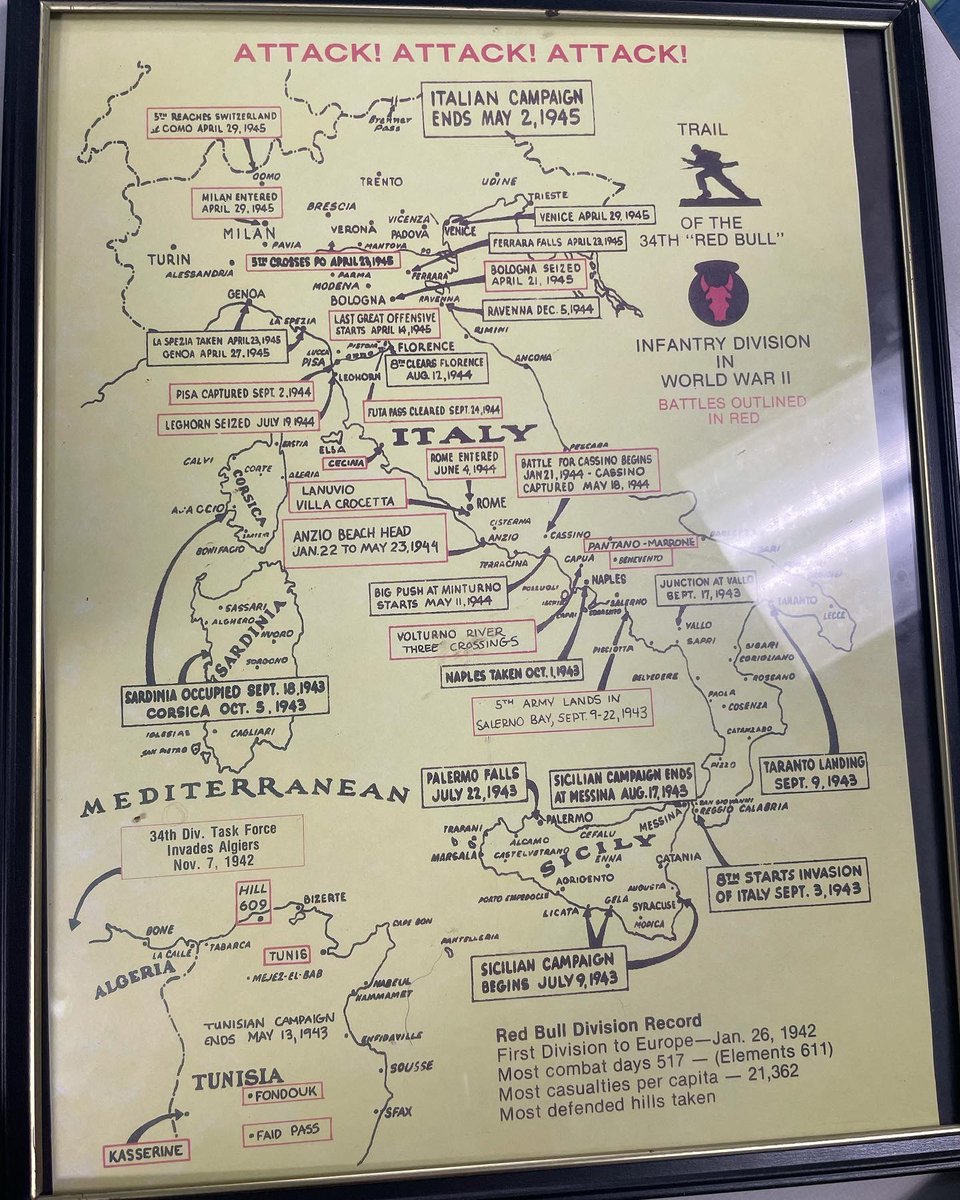 ATTACK! ATTACK! ATTACK!
ITALIAN CAMPAIGN
ENDS MAY 2, 1945
5TH REACHES SWITZERLAND
at COMO APRIL 29, 1945
Brenner
Pass
TRAIL
OF THE
34TH "RED BULL"
INFANTRY DIVISION
IN
WORLD WAR II
BATTLES OUTLINED
IN RED
COMO
TRENTO
UDINE
TRIESTE
MILAN ENTERED
APRIL 29, 1945
BRESCIA
VICENZA
VERONA
PADOVA
VENICE
VENICE APRIL 29, 1945
MILAN
PAVIA
MANTOVA
PO
FERRARA FALLS APRIL 23, 1945
TURIN
ALESSANDRIA
5TH CROSSES PO APRIL 23, 1945
PARMA
MODENA
FERRARA
BOLOGNA SEIZED
APRIL 21, 1945
GENOA
BOLOGNA
RAVENNA
RAVENNA DEC. 5, 1944
LAST GREAT OFFENSIVE
STARTS APRIL 14, 1945
LA SPEZIA
RIMINI
LA SPEZIA TAKEN APRIL 23, 1945
GENOA APRIL 27, 1945
PISTOIA
LUCCA
PISA
FLORENCE
8TH CLEARS FLORENCE
AUG. 12, 1944
ANCONA
LEGHORN
PISA CAPTURED SEPT. 2, 1944
FUTA PASS CLEARED SEPT. 24, 1944
LEGHORN SEIZED JULY 19 1944
ITALY
BASTIA
ELBA
CECINA
PESCARA
CALVI
CORTE
ALERIA
CORSICA
AJACCIO
BONIFACIO
ROME ENTERED
JUNE 4, 1944
BATTLE FOR CASSINO BEGINS
JAN 21, 1944 - CASSINO
CAPTURED MAY 18, 1944
LANUVIO
VILLA CROCETTA
ROME
ANZIO BEACH HEAD
JAN. 22 TO MAY 23, 1944
CISTERNA
ANZIO
CASSINO
TERRACINA
PANTANO-MARRONE
BENEVENTO
CAPUA
BARI
BIG PUSH AT MINTURNO
STARTS MAY 11, 1944
POZZUOLI
NAPLES
CAPRI
SORRENTO
SALERNO
JUNCTION AT VALLO
SEPT. 17, 1943
TARANTO
LECCE
VOLTURNO RIVER
THREE CROSSINGS
VALLO
SAPRI
PISCIOTTA
NAPLES TAKEN OCT. 1, 1943
5TH ARMY LANDS IN
SALERNO BAY, SEPT. 9-22, 1943
SIBARI
CORIGLIANO
ROSSANO
BELVEDERE
PAOLA
COSENZA
CATANZARO
PIZZO
SASSARI
ALGHERO
NUORO
SARDINIA
SORGONO
SARDINIA OCCUPIED SEPT. 18, 1943
CORSICA OCT. 5, 1943
IGLESIAS
CAGLIARI
SAN PIETRO
TARANTO LANDING
SEPT. 9, 1943
MEDITERRANEAN
PALERMO FALLS
JULY 22, 1943
SICILIAN CAMPAIGN ENDS
AT MESSINA AUG. 17, 1943
SAN GIOVANNI
REGGIO CALABRIA
MESSINA
PALERMO
CEFALU
TRAPANI
MARSALA
ALCAMO
CASTELVETRANO
SICILY
ENNA
CATANIA
AGRIGENTO
PORTO EMPEDOCLE
AUGUSTA
GELA
LICATA
SYRACUSE
MODICA
8TH STARTS INVASION
OF ITALY SEPT. 3, 1943
SICILIAN CAMPAIGN
BEGINS JULY 9, 1943
34th Div. Task Force
Invades Algiers
Nov. 7, 1942
HILL
609
BIZERTE
CAPE BON
PANTELLERIA
BONE
LA CALLE
TABARCA
ALGERIA
TUNIS
MEJEZ-EL-BAB
NABEUL
HAMMAMET
TUNISIAN CAMPAIGN
ENDS MAY 13, 1943
ENFIDAVILLE
SOUSSE
TUNISIA
FONDOUK
SFAX
FAID PASS
KASSERINE
Red Bull Division Record
First Division to Europe—Jan. 26, 1942
Most combat days 517 — (Elements 611)
Most casualties per capita — 21,362
Most defended hills taken